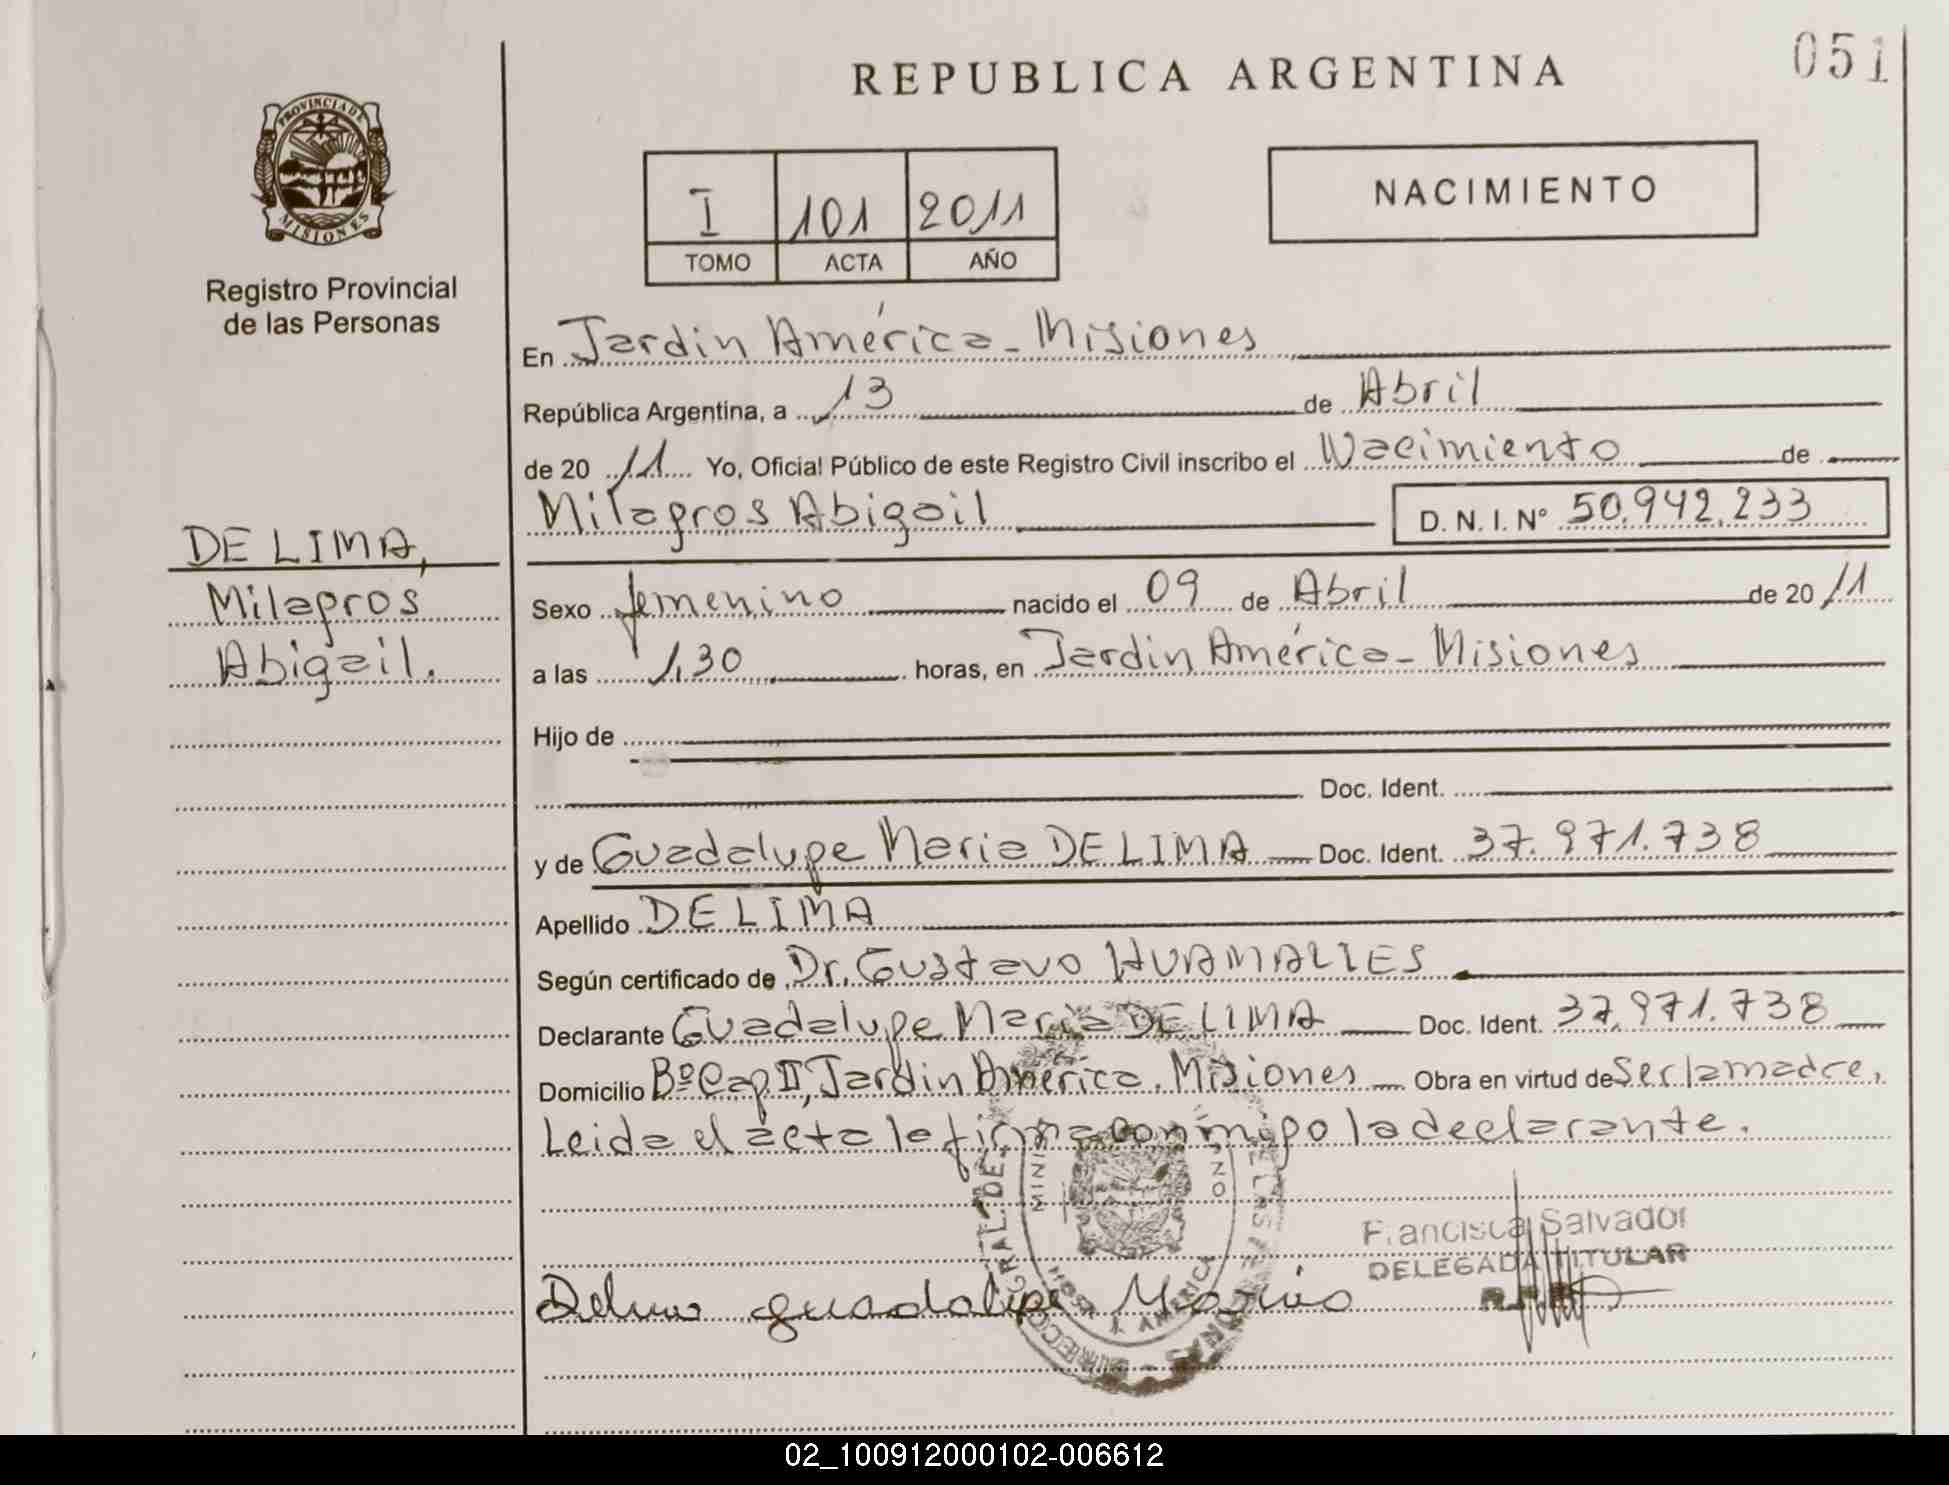 REPUBLICA ARGENTINA
051
PROVINCIA DE
MISIONES
Registro Provincial
de las Personas
I 101 2011
TOMO ACTA AÑO
NACIMIENTO
En Jardín América - Misiones
República Argentina, a 13 de Abril
de 20 11 Yo, Oficial Público de este Registro Civil inscribo el Nacimiento de
Milagros Abigail D. N. I. Nº 50.942.233
DE LIMA,
Milagros
Abigail.
Sexo femenino nacido el 09 de Abril de 20 11
a las 1,30 horas, en Jardin América - Misiones
Hijo de
Doc. Ident.
y de Guadalupe Maria DE LIMA Doc. Ident. 37.971.738
Apellido DE LIMA
Según certificado de Dr. Gustavo HUAMALIES
Declarante Guadalupe Maria DE LIMA Doc. Ident. 37.971.738
Domicilio Bº Cap II, Jardin América, Misiones Obra en virtud de Ser la madre,
Leida el acta la firma conmigo la declarante.
Francisca Salvador
DELEGADA TITULAR
guadalupe Maria
02_100912000102-006612